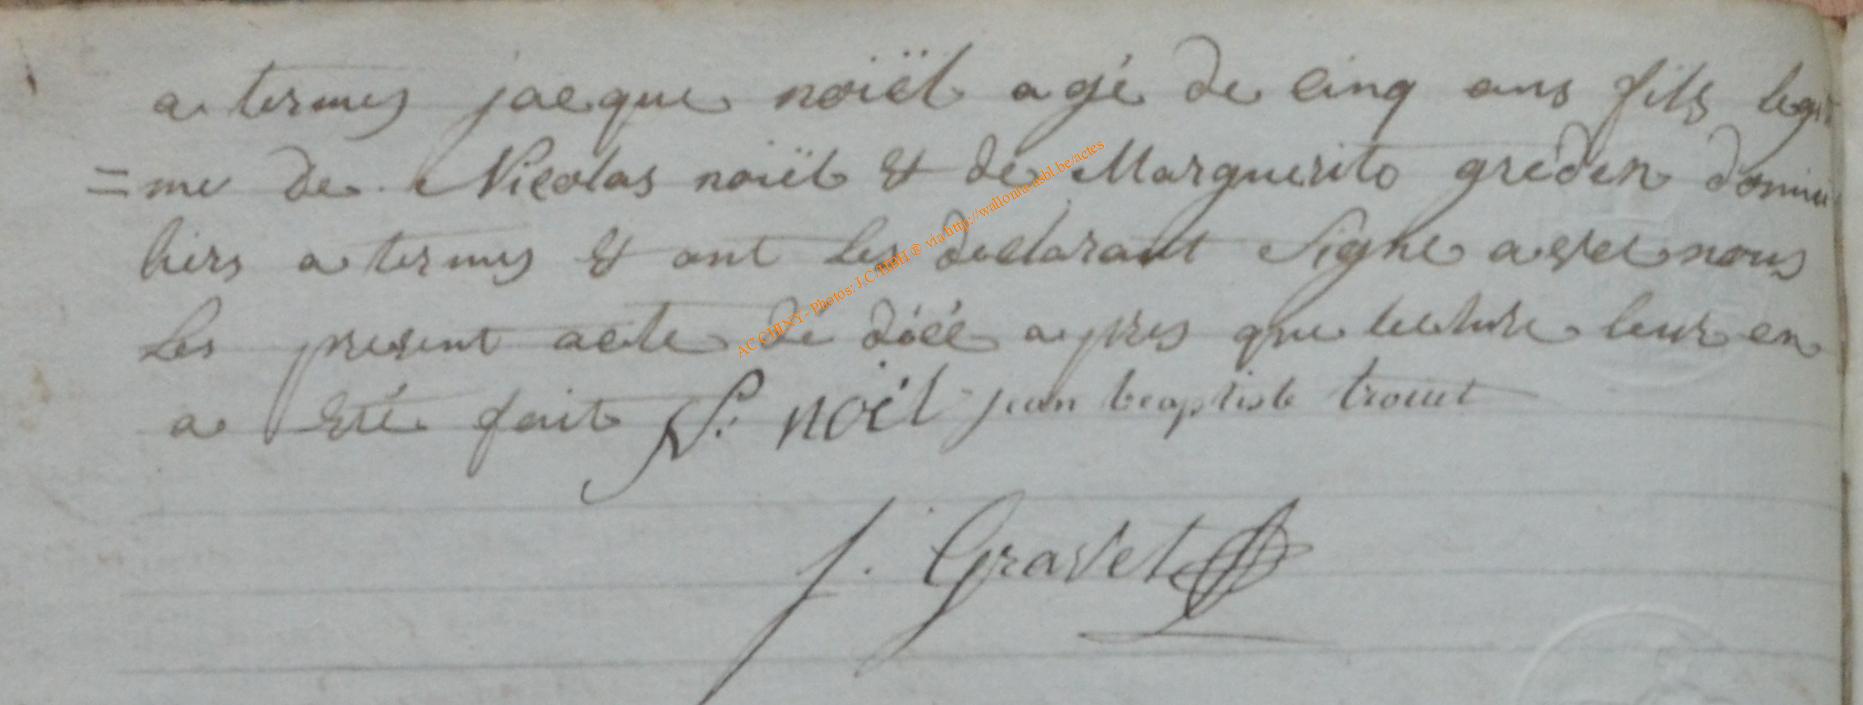 a termes jacque noiël agé de cinq ans fils legi
=me de Nicolas noiël & de Marguerite greden domici
liers a termes & ont les declarant signe avec nous
les present acte de décé apres que lecture leur en
a été fait N: noël jean beaptiste trouet
J. Gravet
AC CHINY - Photos: J.C. HBH ® via http://wallonia-asbl.be/actes